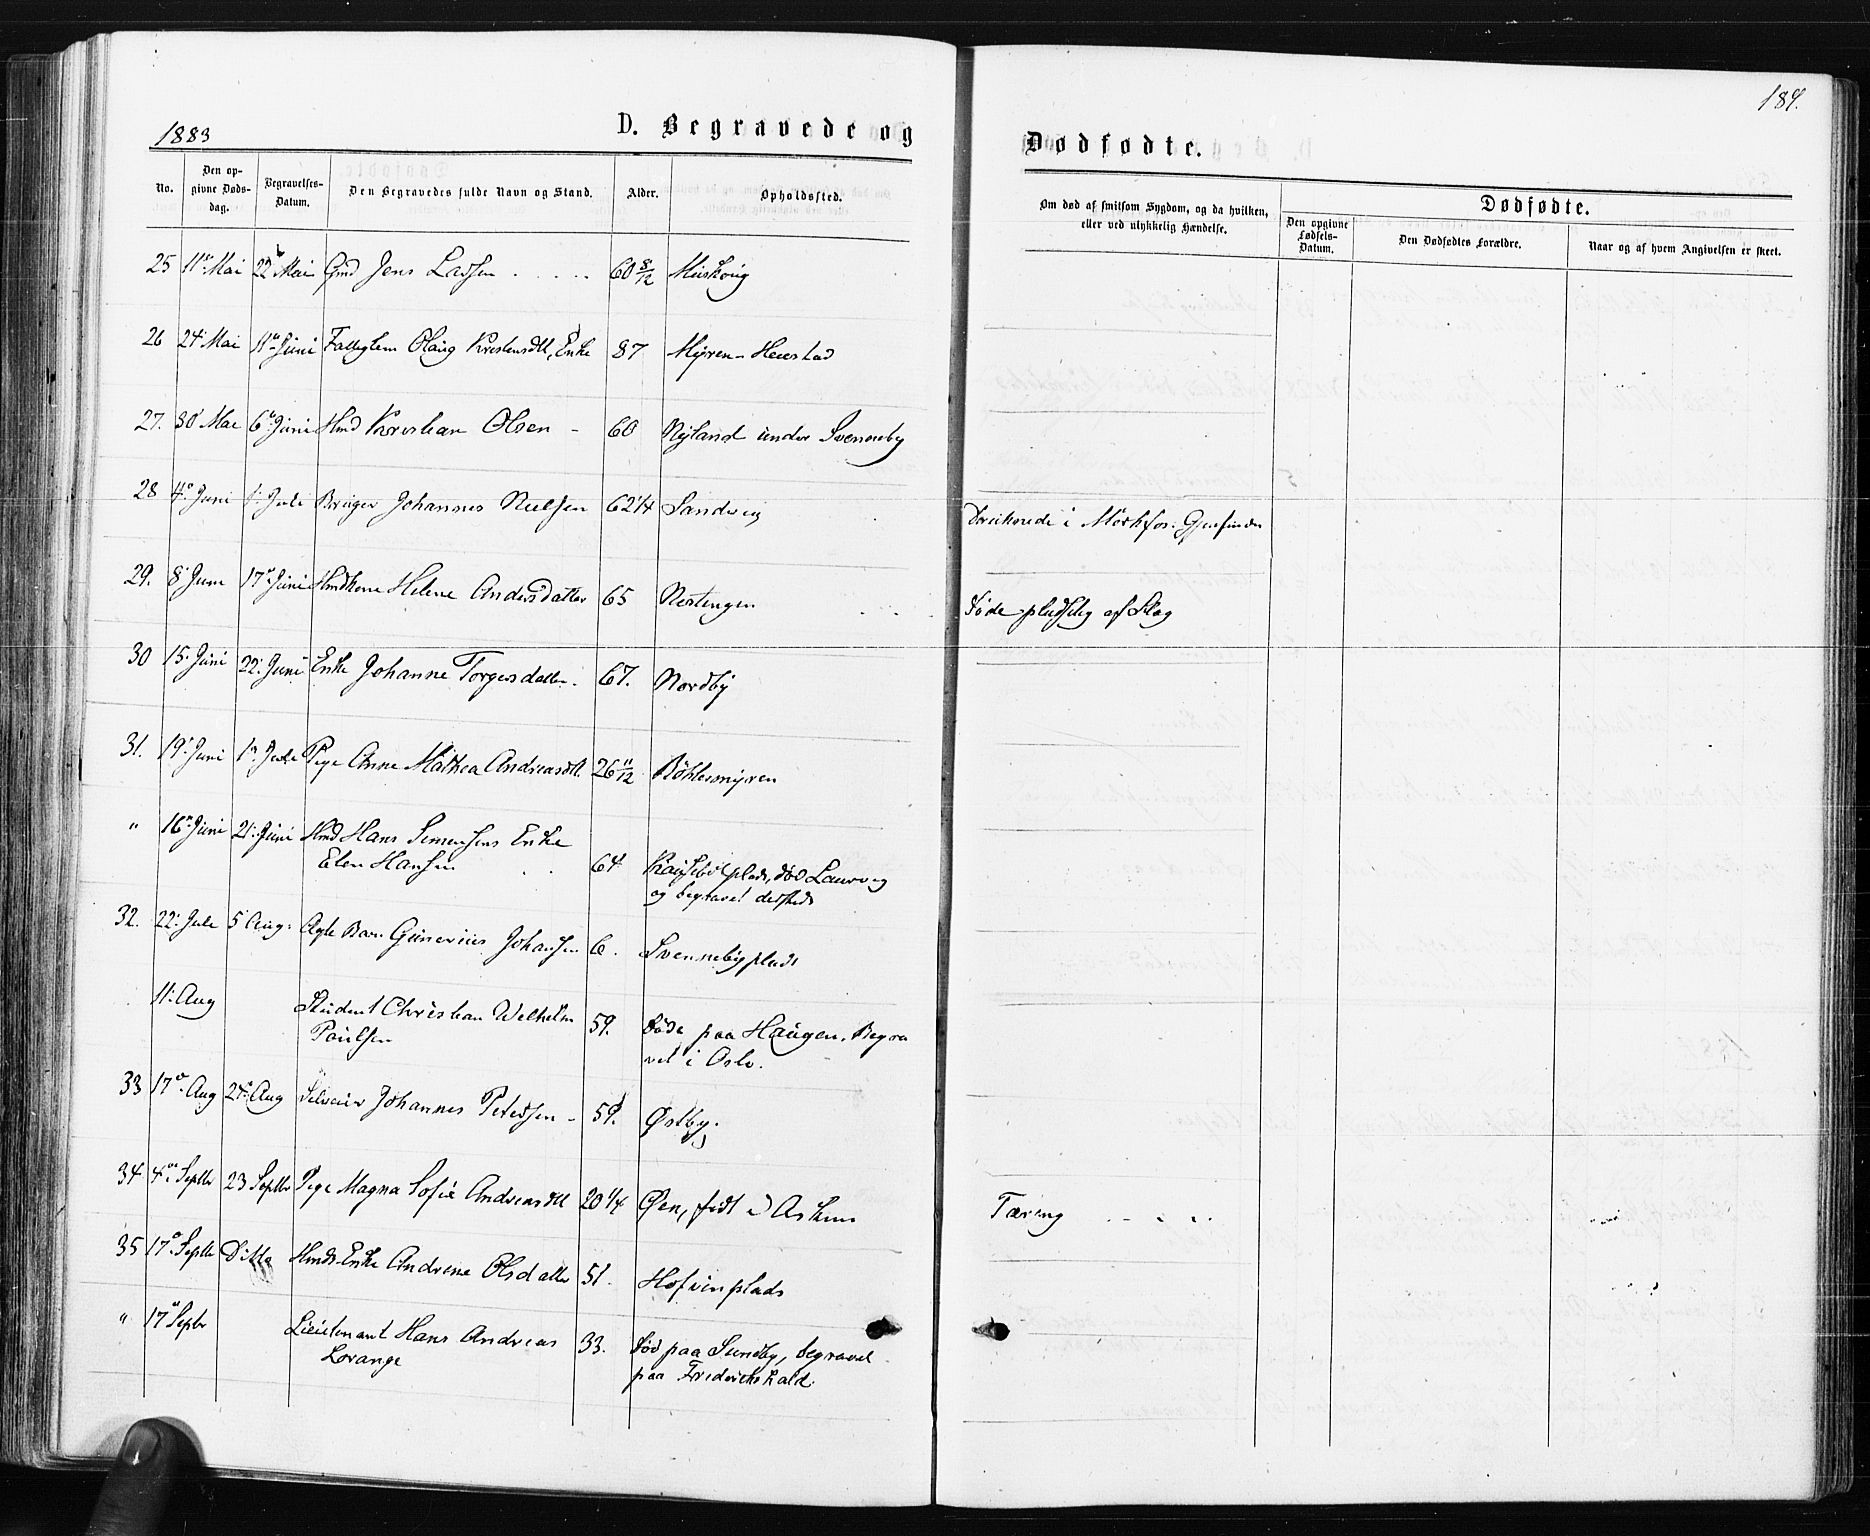 184.
1883
D. Begravede og
Dødfødte.
No.
Den opgivne Dødsdag.
Begravelses-Datum.
Den Begravedes fulde Navn og Stand.
Alder.
Opholdssted.
Om død af smitsom Sygdom, og da hvilken, eller ved ulykkelig Hændelse.
Dødfødte.
Den opgivne Fødsels-Datum.
Den Dødfødtes Forældre.
Naar og af hvem Angivelsen er skeet.
25 11te Mai 22 Mai Gmd Jens Larsen 60 8/12
26 24 Mai 11te Juni Olaug Kristensdtt, Enke 87 Myren-Heiestad
27. 30 Mai 6te Juni Hmd Kristian Olsen - 60 Nyland under Svenneby
28 4de Juni 1 Juli Bruger Johannes Nielsen 62 1/4 Sandvig
i Mörkfos.
29. 8 Juni 17de Juni Hmdkone Helene Andersdatter 65 Nestengen
Døde pludselig af Slag
30 15. Juni 22. Juni Enke Johanne Torgersdatter. 67. Nordby
31. 19. Juni 1ste Juli Pige Anne Mathea Andreasdtt. 26 11/12 Böhlermyren
" 16de Juni 21. Juni Hmd Hans Simensens Enke
Elen Hansen 64 plads, død Laurvig
og begravet dersteds
32. 22. Juli 5 Aug. Ægte Barn Gunerius Johansen 6. Svennebyplads
11. Aug Student Christian Wilhelm
Paulsen 59. Døde paa Haugen. Begra
vet i Oslo.
33 17de Aug 24de Aug Selveier Johannes Petersen - 59. Østby.
34 4de Septbr 23 Septbr Pige Magna Sofie Andreasdtt 20 1/4 Øen, født i Askim
Tæring
35 17de Septbr Ditto Hmds Enke Andrine Olsdatter 51. Hofvinplads
" 17de Septbr Lieutenant Hans Andreas
Lorange 33. Død paa Sundby, begravet
paa Frederikshald.